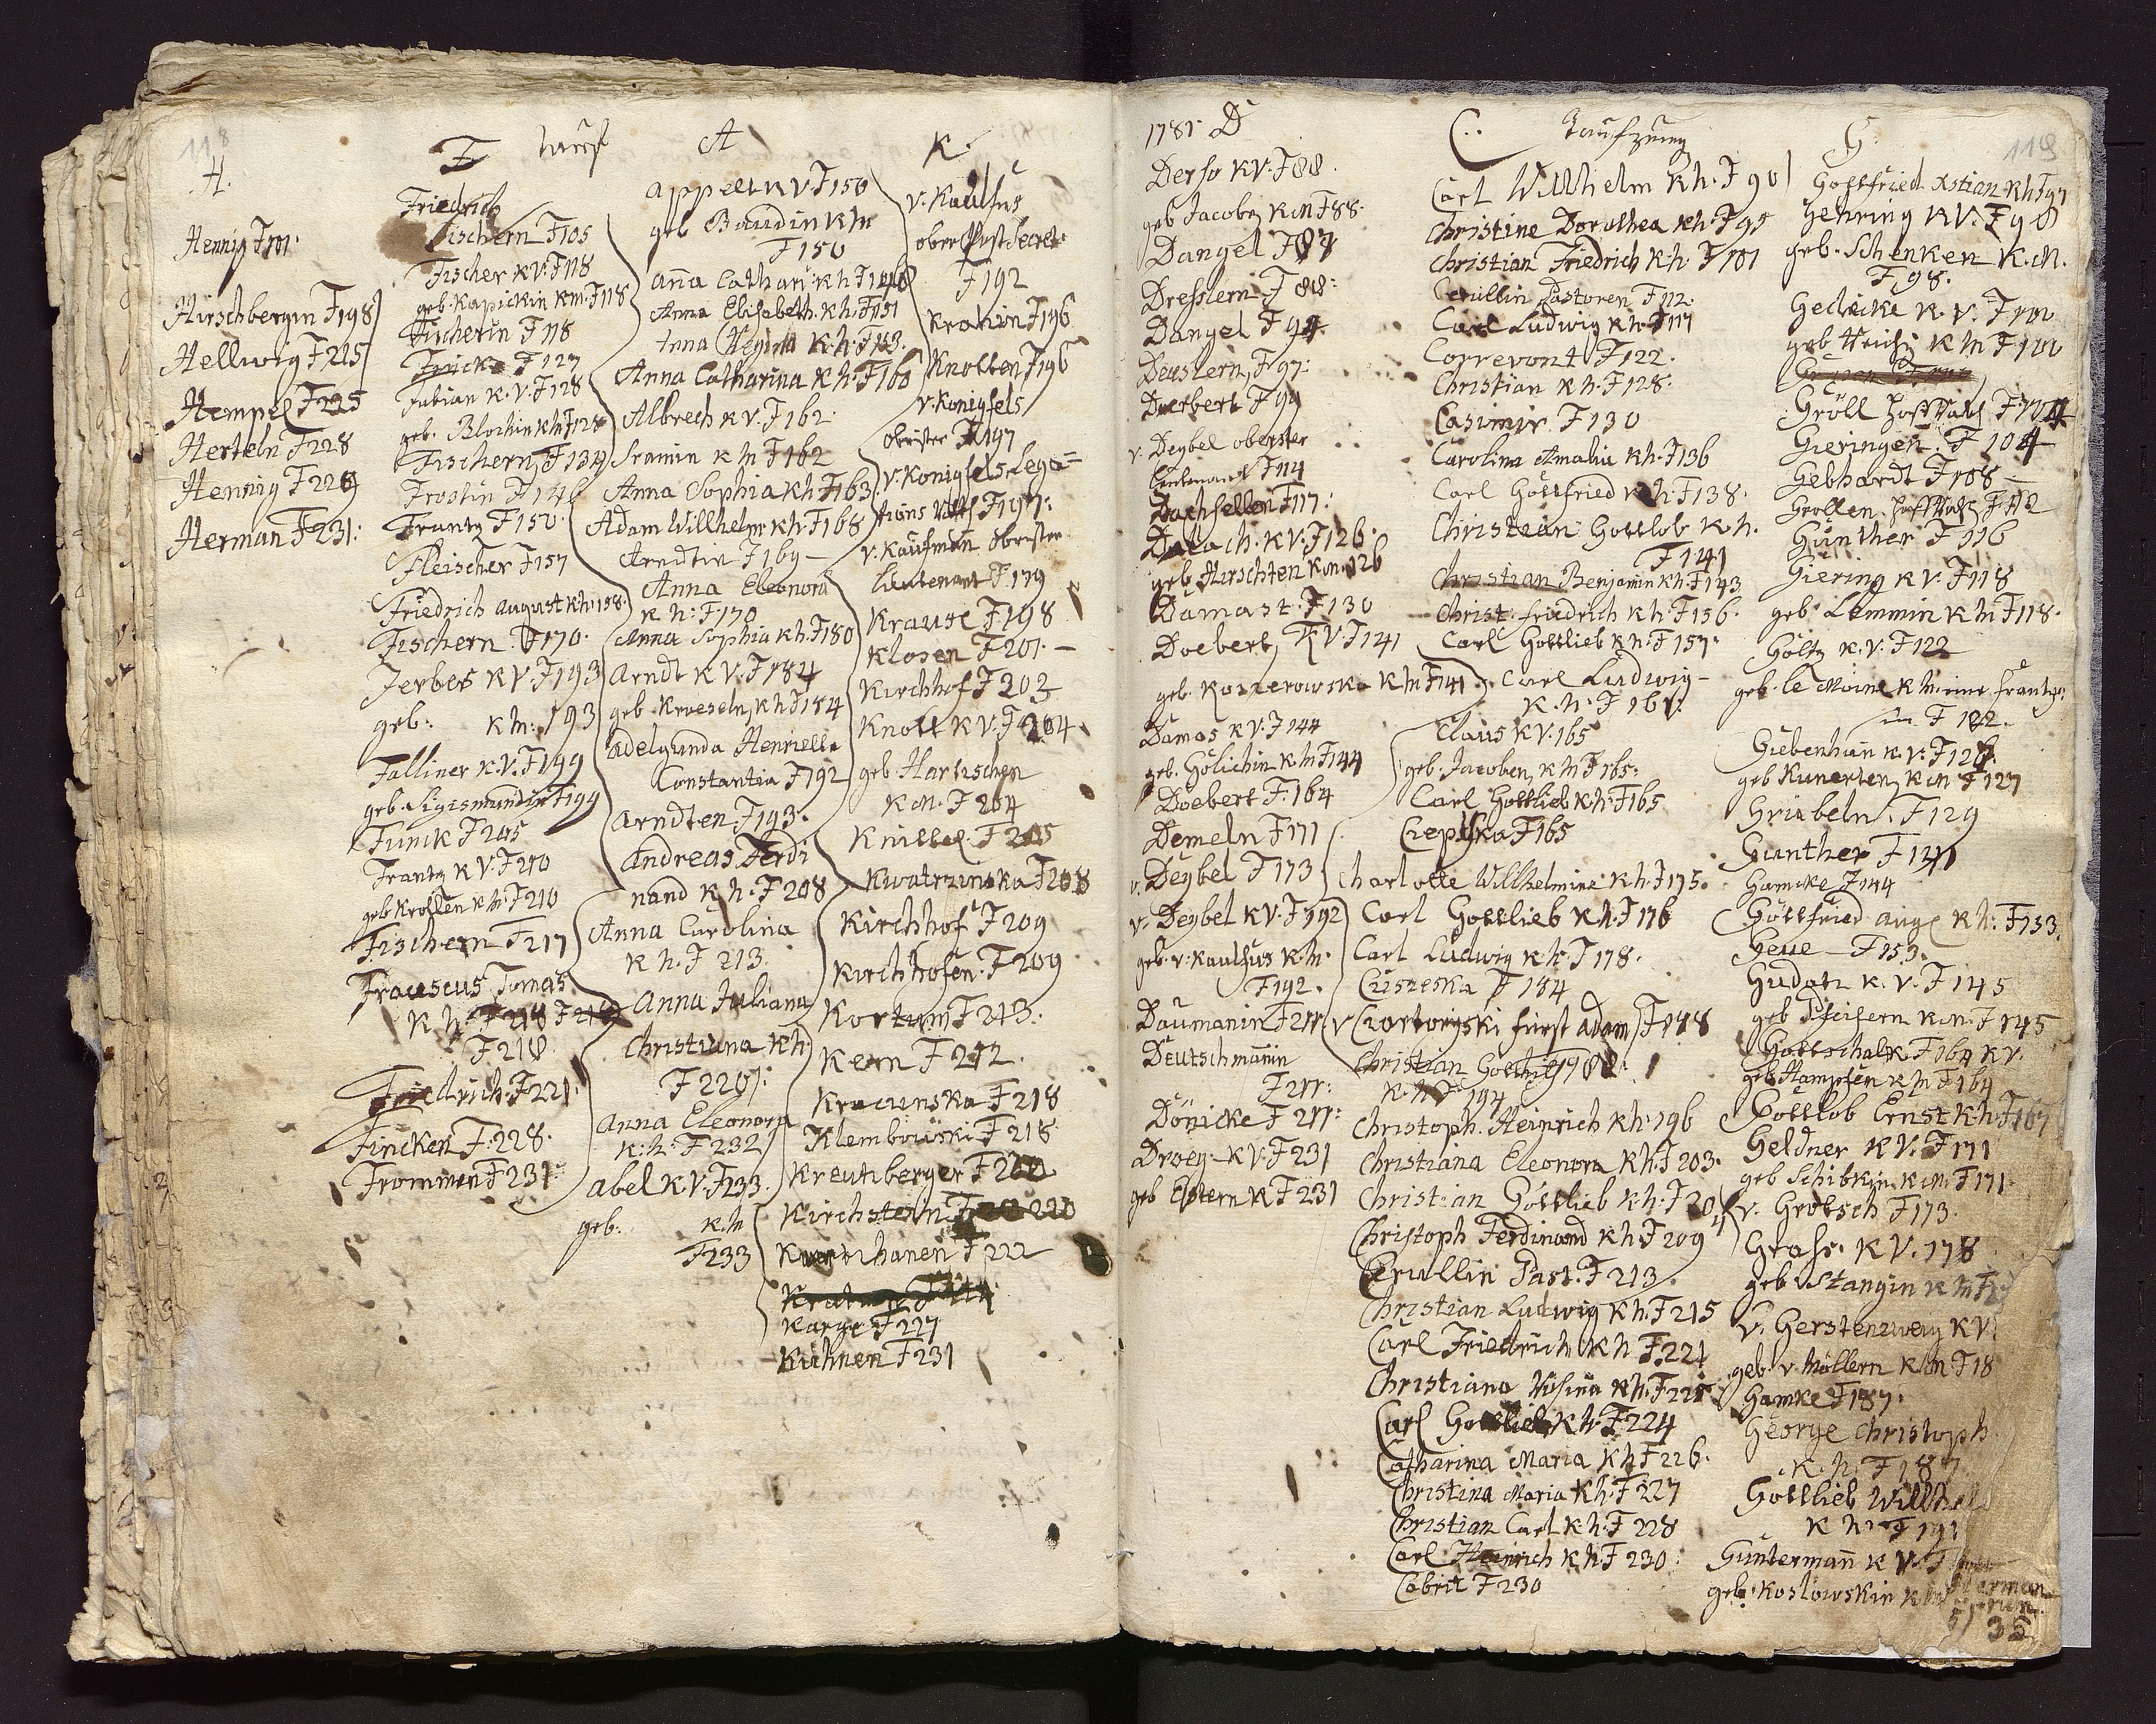 118
H.
Hennig F 101.
Hirschbergin F 198
Hellwig F 215
Hempel F 225
Herteln F 228
Hennig F 229
Herman F 231:
F
tauf
Friedrich
Fischern F 105
Fischer K V. F 118
geb. Kapickin K M. F 118
Fischerin F 118
Fricke F 127
Fabian K. V. F 128
geb. Blochin K M F 128
Fischern F 134
Frostin F 146
Frantz F 150
Fleischer F 157
Friedrich August K h. 158.
Fischern. F 170.
Ferbers K V. F 193
geb: K M: 193
Falliner K. V. F 199
geb. Sigismundin F 199
Funck F 205
Frantz K V. F 210
geb Krollen K M. F 210
Fischern F 217
Franscus Tomas
K h. F 218
F 218
Friedrich. F 221
Fincken F. 228.
Frommen F 231:
A
Appelt K V. F 150
geb Baudin K M
F 150
Anna Cathari: K h F
Anna Elisabeth. K h. F 151
Anna Regina K. h. F 153.
Anna Catharina K h. F 160
Albrech K V. F 162
Sramin K M F 162
Anna Sophia K h F 163
Adam Willhelm K h. F 168
Arndtin F 169 —
Anna Eleonora
K h: F 170
Anna Sophia K h. F 180
Arndt K V. F 184
geb Kroeseln K h F 184
Adelgunda Henriella
Constantia F 192
Arndten. F 193.
Andreas Ferdi
nand K h. F 208
Anna Carolina
K h. F 213.
Anna Juliana
Christiana K h
F 220
Anna Eleonora
K: h: F 232
Abel K. V. F 233.
geb. K M
F 233
K.
v. Kaulfus
ober Post Secret.
F 192
Krohin F 196
Knollen F 196
v. Konigfels
obrister F 197
v. Konigfels Lega=
tions Rath F 197:
v. Kaufman obrister
lieutenant F 179
Krause F 198
Klosen F 201. —
Kirchhof F 202
Knott K V. F 204
geb. Hartzschen
K M. F 204
Knittel F 205
Kwatrzinska F 208
Kirchhof F 209
Kirchhofen. F 209
Kortum F 213.
Kern F 212.
Kracunska F 218
Klembowski F 218
Kreutzberger F 220
Kirchstein F 220
Kwartzhanen F 222
Karge F 227
Kühnen F 231
1781. D
Derso K V. F 88.
geb Jacoby K M F 88.
Dangel F 87
Dresslern F 88:
Dangel F 94
Deustern, F 97:
Doerbert F 99
v. Deybel oberster
lieutenant F 114
Dachsellen F 117:
Dalach. K V. F 126:
geb. Hirschten K M. 126
Damast. F 130
Doebert K V. F 141
geb. Koszerowska K M F 141
Damas K V. F 144
geb. Gölichin K M F 144
Doebert F. 164
Demeln F 171
v. Deybel F 173
v. Deybel K V. F 192
geb. v. Kaulfus K M.
F 192.
Daumanin F 211
Deutschmanin
F 211:
Dönicke F 211:
Droeg K V. F 231
geb Elstern K F 231
C..
Taufzung
Carl Willhelm K h. F 90
Christine Dorothea K h. F 95
Christian Friedrich K h. F 101
Cerullin Pastoren F 112.
Carl Ludwig K h. F 117
Correvont F 122.
Christian K h. F 128.
Casimir F 130
Carolina Amalia K h. F 136
Carl Gottfried K h. F 138.
Christian Gottlob K. h.
F 141
Christian Benjamin K h. F 143
Christ. Friedrich K h. F 156.
Carl Gottlieb K h. F 157:
Carl Ludwig —
K. h. F 161.
Claus K V. 165
geb. Jacoben K M F 165:
Carl Gottlieb K. h. F 165
Czepska F 165
Charlotte Willhelmine K h. F 175.
Carl Gottlieb K h. F 176
Carl Ludwig K h. F 178.
Ciszeska F 184
v Czartoryski fürst Adam F 188
Christian Gottlieb
K. h. F 194
Christoph. Heinrich K h. 196
Christiana Eleonora K h. F 203.
Christian Gottlieb K h. F 204
Christoph Ferdinand K h. F 209
Cerullin Past. F 213.
Christian Ludwig K h. F 215
Carl Friedrich K h F. 221
Christiana Rosina K h. F 225
Carl Gottlieb K h. F 224
Catharina Maria K h F 226.
Christina Maria K h. F 227
Christian Carl K h. F 228
Carl Heinrich K h F 230:
Cabrit F 230
G.
119
Gottfried Xstian K h F 97
Gehring K V. F 98
geb. Schenken K. M.
F 98.
Gedicke K. V. F 100
geb K M F 100
Gröll Hoff Rath F 104
Gieringen F 104
Gebhardt F 108 —
Grollen. Hoff Rath F 112
Günther F 116
Giering K V. F 118
geb. Lemmin K M F 118.
Göltz K. V. F 122
geb. le Moine K M. eine Frantz:
in F 122.
Giebenhain K. V. F 126.
geb Kunerten, K M F 127
Grübeln. F 129
Gunther F 141
Gamcke F 144
Gottfried Aug K h: F 153.
Gene — F 153.
Gudatz K. V. F 145
geb Pfeifern K M. F 145
Gottschalk F 164 K V.
geb Hampfen K M F 164
Gottlob Ernst K h. F 167
Geldner K V. F 171
geb Schibkin. K M. F 171
v. Grobsch F 173.
Grase. K V. 178
geb. Stangin K M F
v. Gerstenzweig K V.
geb. v. Möllern K M F 18
Gamke F 187.
George Christoph
K. h. F 187
Gottlieb Willhel
K h. F 191
Güntermañ K V. F
geb. Koslowskin K M
35